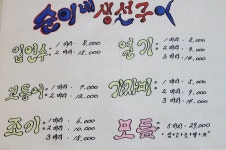 순이네 생선구이
임연수
1 마리 : 8,000
2 마리 : 15,000
열기
1 마리 : 5,000
2 마리 : 9,000
3 마리 : 14,000
고등어
1 마리 : 7,000
2 마리 : 12,000
가자미
1 마리
2 마리
3 마리
조기
1 마리 : 6,000
2 마리 : 10,000
3 마리 : 15,000
모듬
5 마리 : 29,000